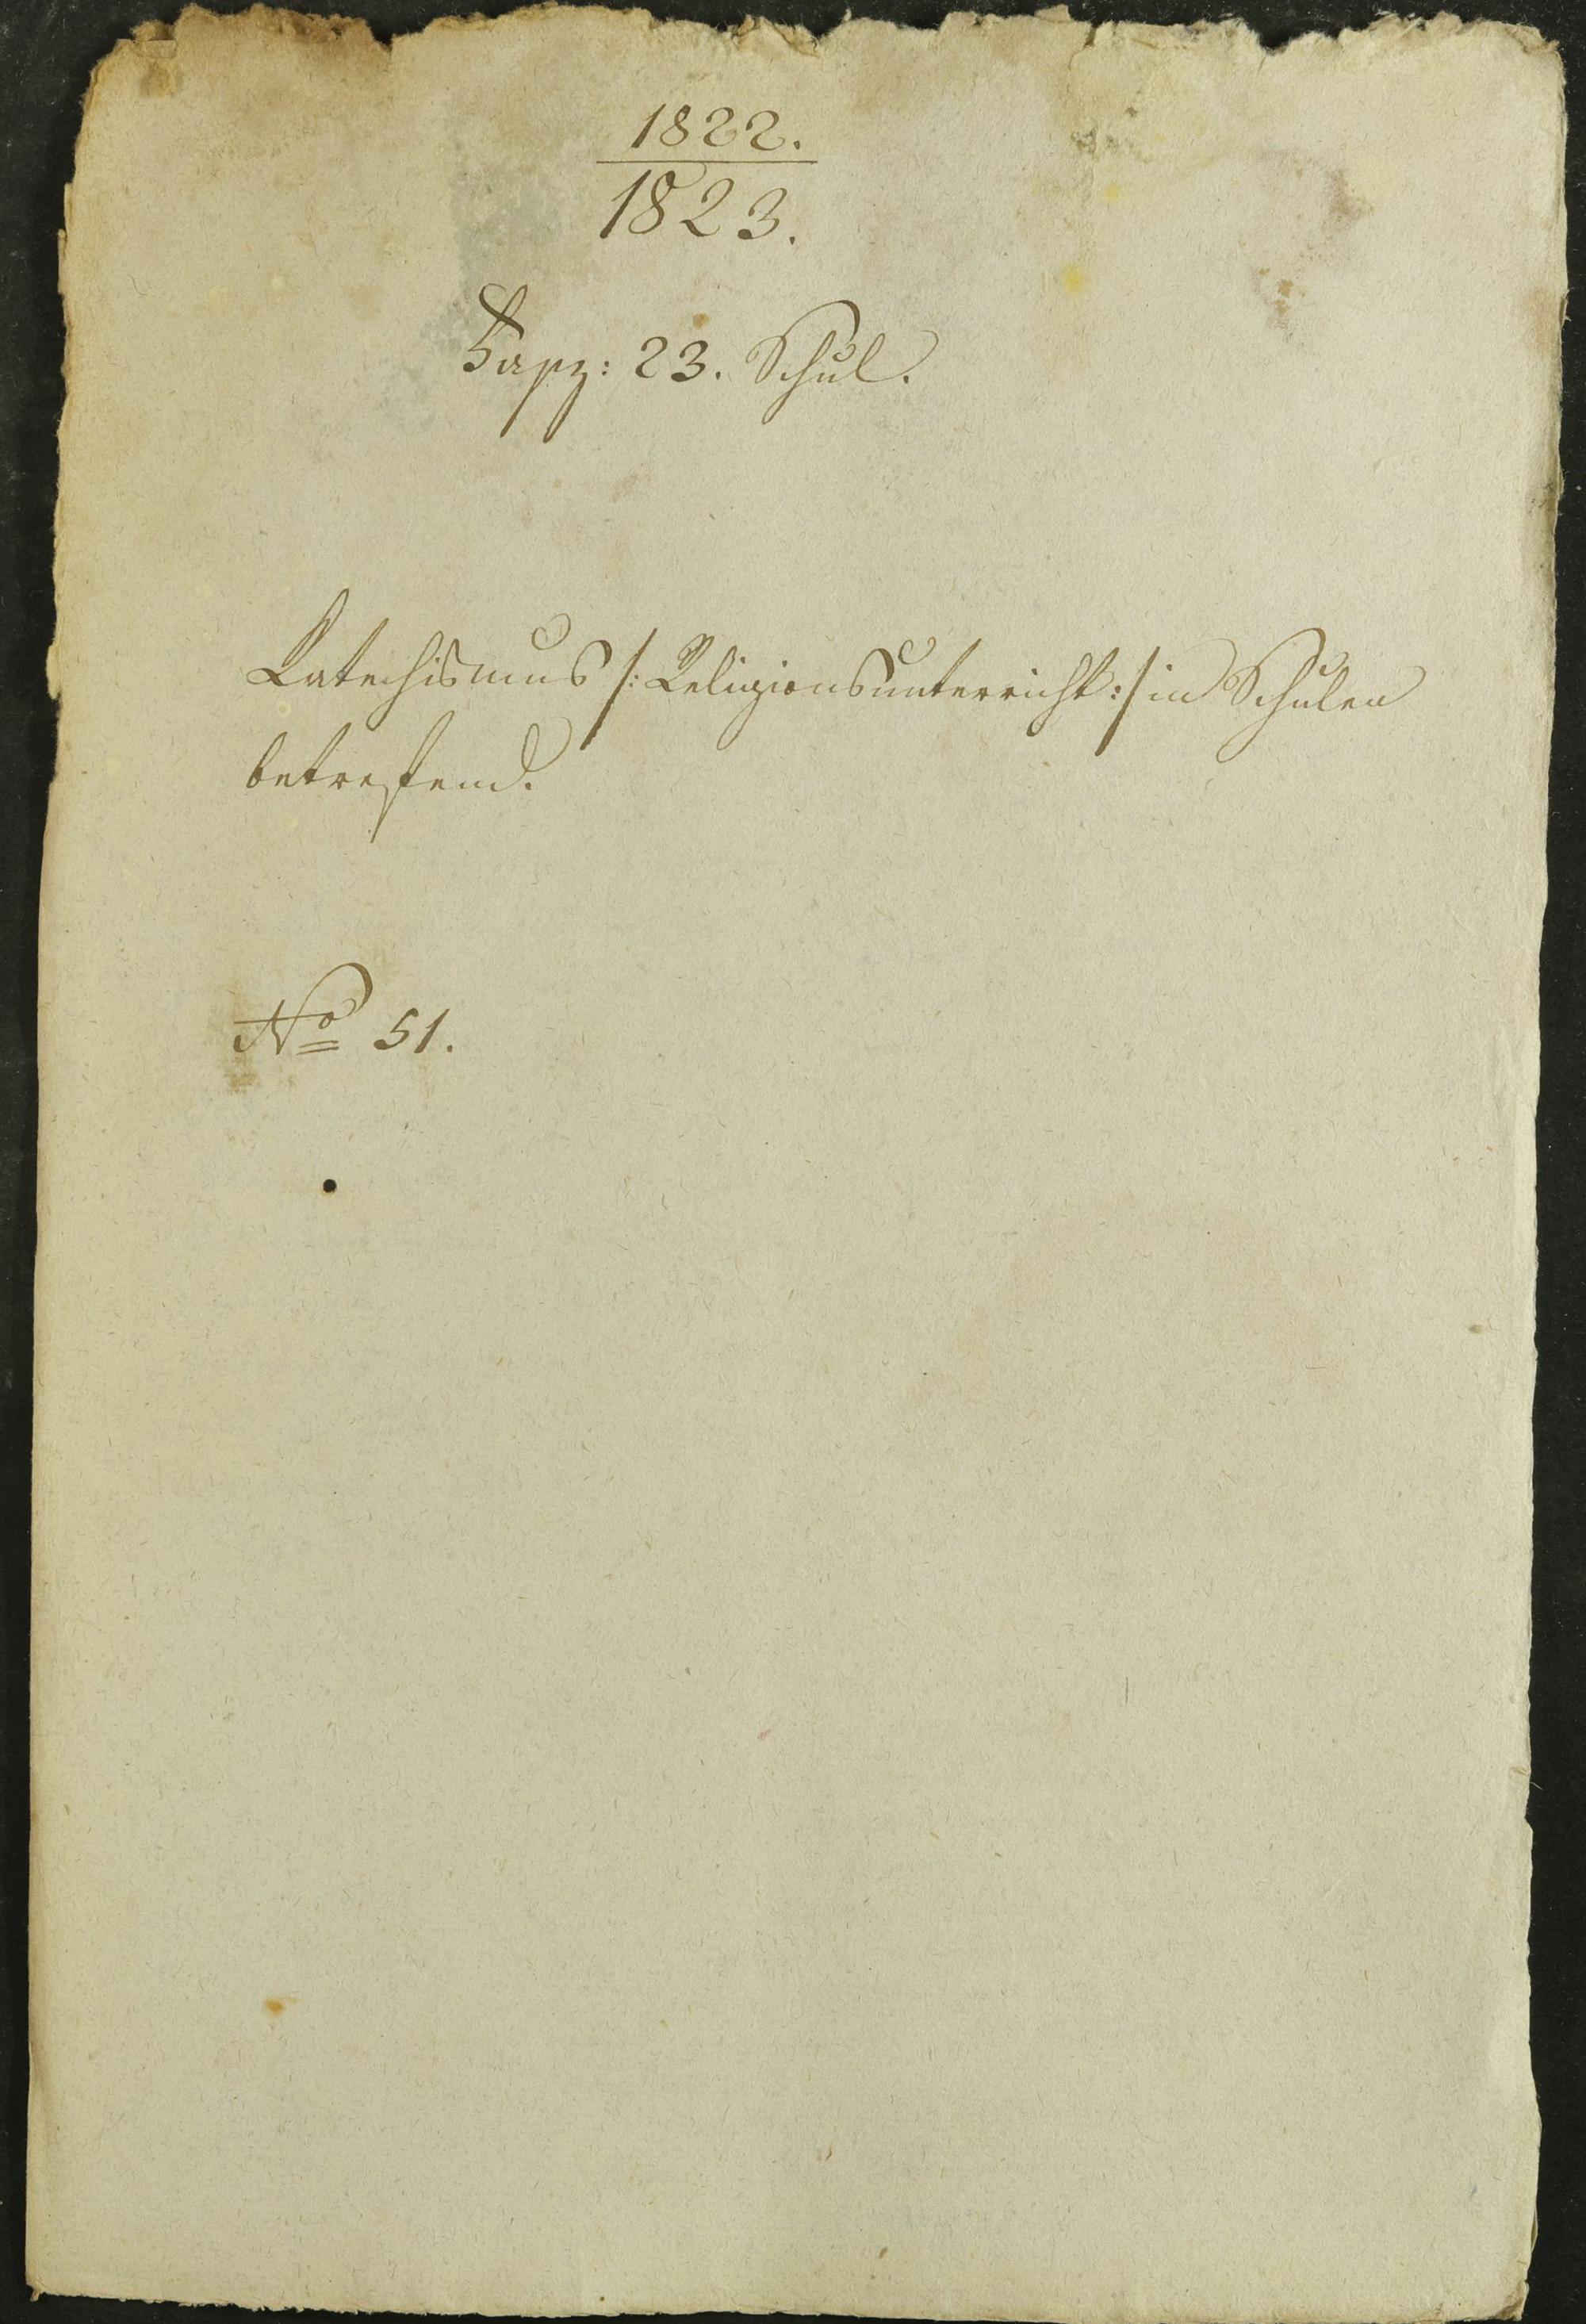 1822.
1823.
Fasz: 23. Schul.
Catechismus /: Religionsunterricht :/ in Schulen
betreffend.
No 51.